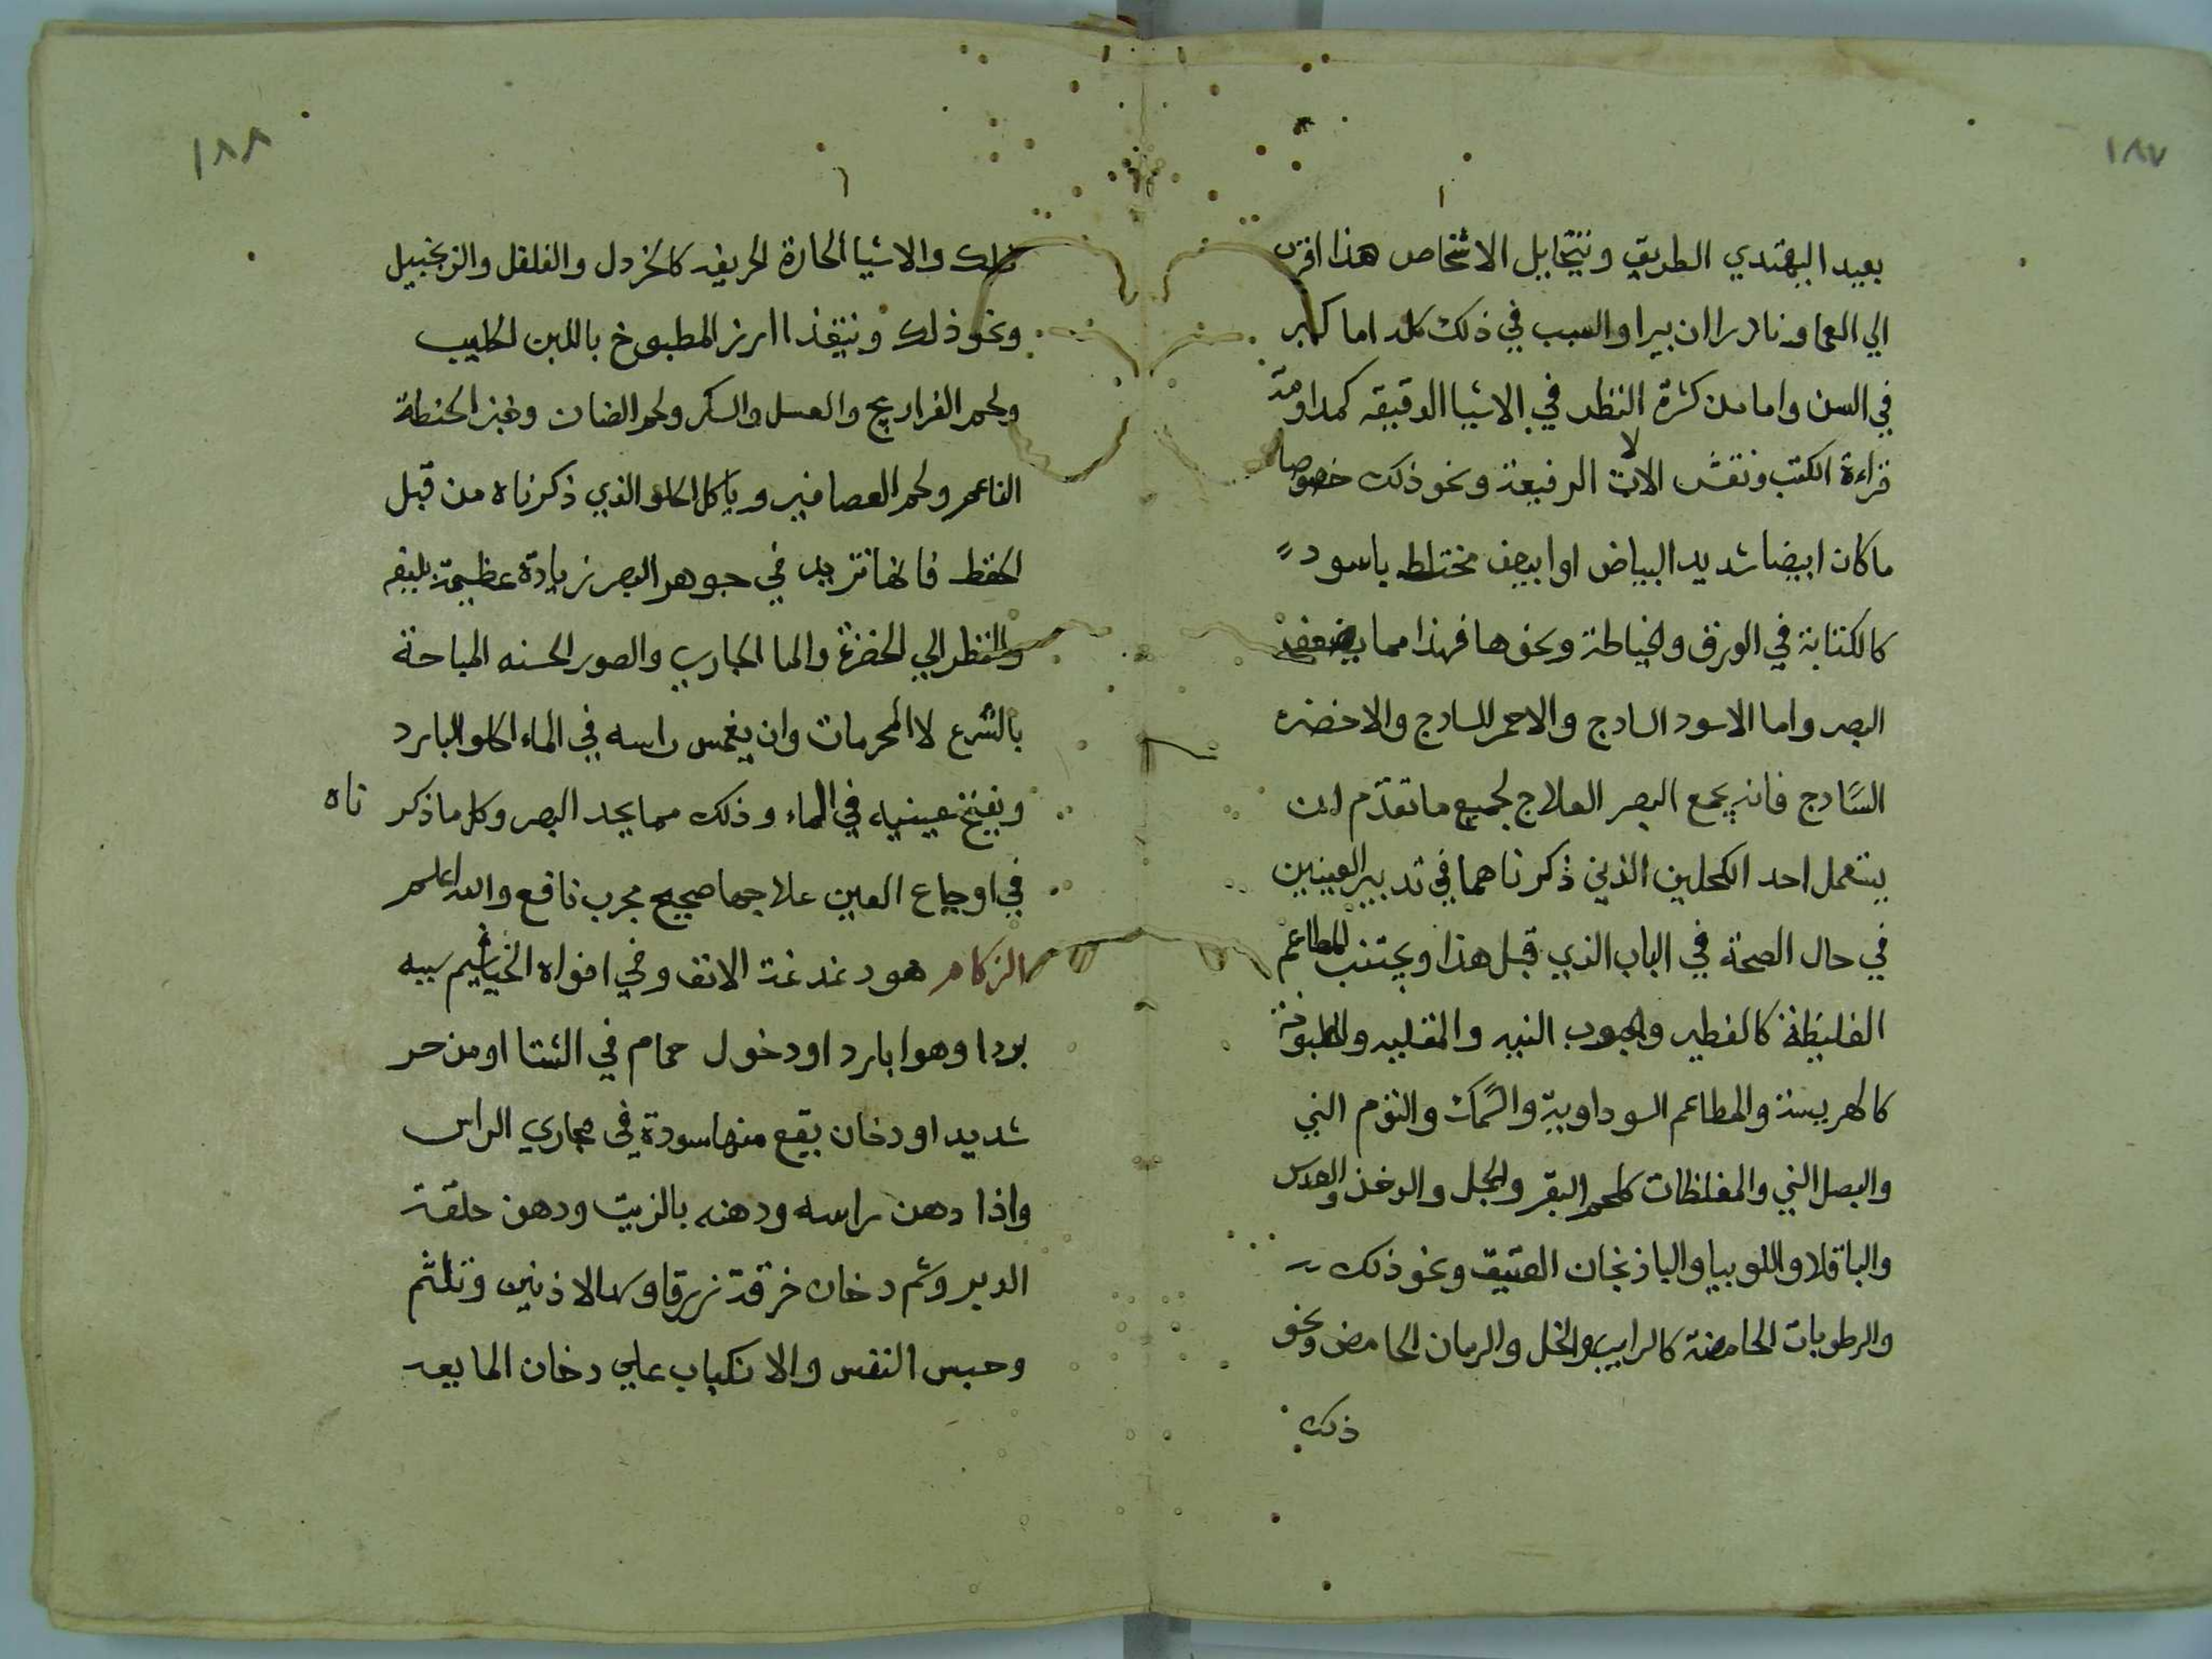 ١٨٧
بعيد اليهتدي الطريق ويتخايل الاشخاص هذا اقرب
الي العما ونادرا ان يبرا والسبب في ذلك كله اما كبر
في السن واما من كثرة النظر في الاشيا الدقيقه كمداومة
قراءة الكتب ونقش الالات الرفيعة ونحو ذلك خصوصا
ما كان ابيضا شديد البياض او ابيض مختلط باسود
كالكتابة في الورق والخياطة ونحوها فهذا مما يضعف
البصر واما الاسود السادج والاحمر السادج والاخضر
السادج فانه يجمع البصر العلاج لجميع ما تقدم ان
يستعمل احد الكحلين الذين ذكرناهما في تدبير العينين
في حال الصحة في الباب الذي قبل هذا ويجتنب المطاعم
الغليظة كالفطير والحبوب النيه والمقليه والمطبوخة
كالهريسة والمطاعم السوداوية والسمك والثوم الني
والبصل الني والمغلظات كلحم البقر والجل والدخن والعدس
والباقلا واللوبيا والباذنجان العتيق ونحو ذلك
والرطوبات الحامضة كالرايب والخل والرمان الحامض ونحو
ذلك
١٨٨
ذلك والاشيا الحارة الحريفه كالخردل والفلفل والزنجبيل
ونحو ذلك ويتغذا ارز المطبوخ باللبن الحليب
ولحم الفراريج والعسل والسكر ولحم الضان وخبز الحنطة
الناعم ولحم العصافير وياكل الحلو الذي ذكرناه من قبل
الحفظ فانها تزيد في جوهر البصر زيادة عظيمة بليغه
والنظر الي الخضرة والما الجاري والصور الحسنه المباحة
بالشرع لا المحرمات وان يغمس راسه في الماء الحلو البارد
ويفتح عينيه في الماء وذلك مما يحد البصر وكل ما ذكر ناه
في اوجاع العين علاجها صحيح مجرب نافع والله اعلم
الزكام هو دغدغة الانف وفي افواه الخياشيم سببه
بردا وهوا بارد او دخول حمام في الشتا او من حر
شديد او دخان يقع منها سودة في مجاري الراس
واذا دهن راسه ودهنه بالزيت ودهن حلقة
الدبر وشم دخان خرقة زرقا وسد الاذنين وتلثم
وحبس النفس والانكباب علي دخان الما بعد